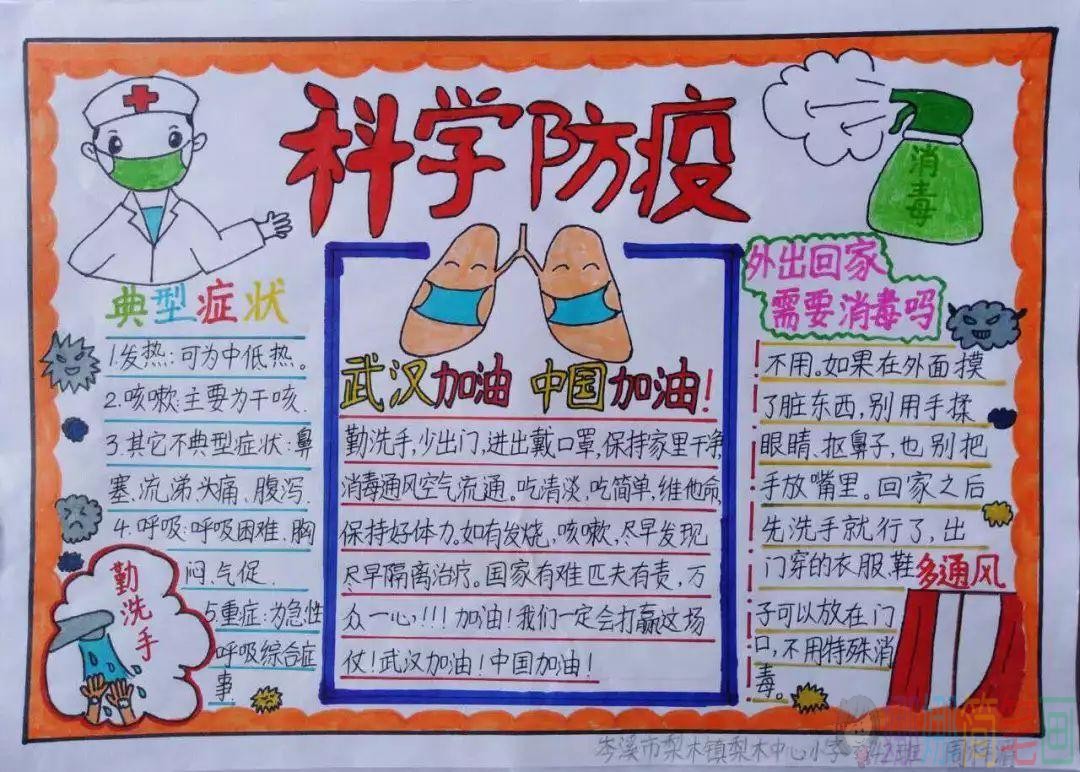 科学防疫
消毒
典型症状
1.发热:可为中低热。
2.咳嗽:主要为干咳.
3.其它不典型症状:鼻
塞、流、涕、头痛、腹泻.
4.呼吸:呼吸困难、胸
闷、气促.
5.重症:为急性
呼吸综合症
事
勤洗手
武汉加油 中国加油!
勤洗手,少出门,进出戴口罩,保持家里干净
消毒通风空气流通。吃清淡,吃简单,维他命,
保持好体力。如有发烧,咳嗽,尽早发现
尽早隔离治疗。国家有难匹夫有责,万
众一心,!!!加油!我们一定会打赢这场
仗!武汉加油!中国加油!
外出回家
需要消毒吗
不用。如果在外面摸
了脏东西,别用手揉
眼睛、抠鼻子,也别把
手放嘴里。回家之后
先洗手就行了,出
门穿的衣服、鞋
子可以放在门
口,不用特殊消
毒。
多通风
岑溪市梨木镇梨木中心小学 42班